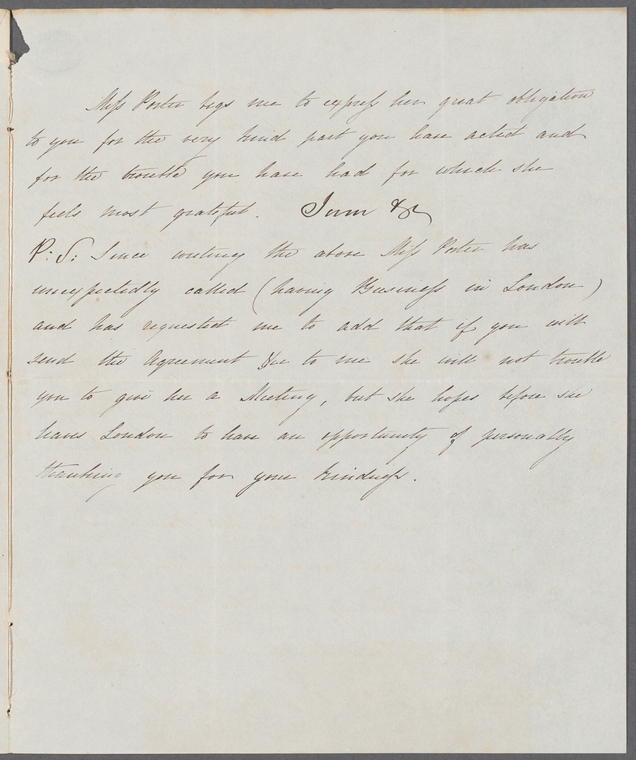 Miss Porter begs me to express her great obligation
to you for the very kind part you have acted and
for the trouble you have had for which she
feels most grateful.
P:S: Since writing the above Miss Porter has
unexpectedly called (having Business in London)
and has requested me to add that if you will
send the Agreement &c to me she will not trouble
you to give her a Meeting, but she hopes before she
leaves London to have an opportunity of personally
thanking you for your kindness.